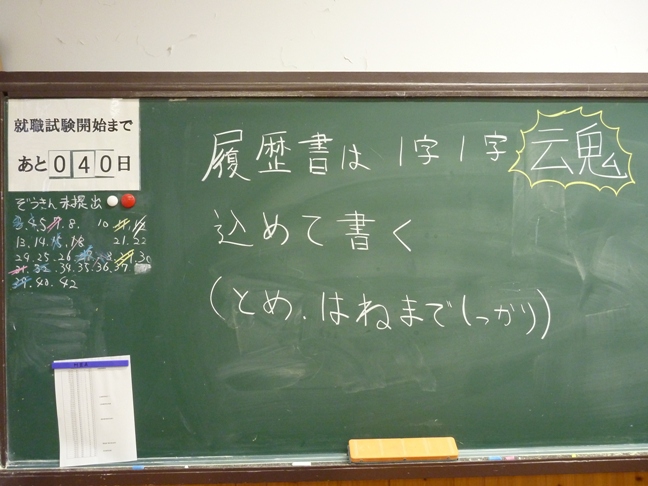 就職試験開始まで
あと040日
ぞうきん未提出
3.4.5.7.8. 10 11.12
13.14.15.18 21.22
24.25.26 28 29.30
31.32.34.35.36.37
39.40.42
履歴書は1字1字云鬼
込めて書く
(とめ.はねまでしっかり)